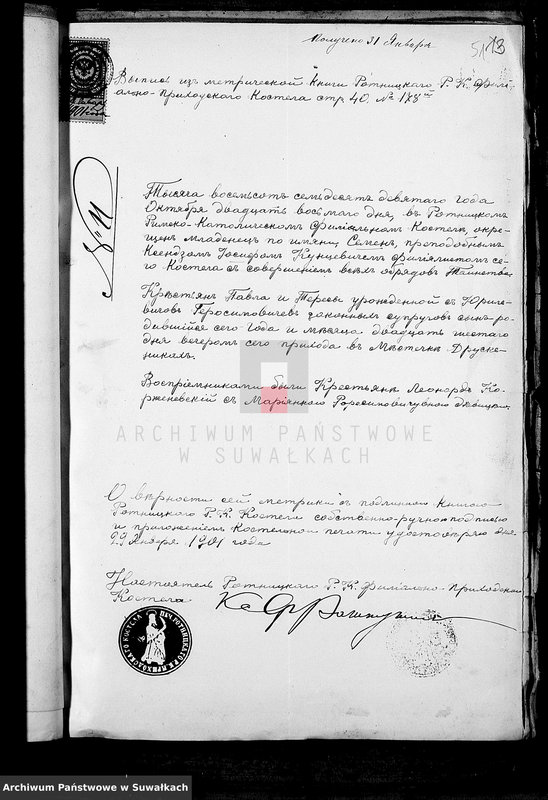 Получено 31 Января
13
Выпись из метрической книги Ротницкого Р. К. Филі-
ально-приходскаго Костела стр 40. № 178
№ 11
Тысяча восемьсотъ семьдесятъ девятаго года
Октября двадцать восьмаго дня, въ Ротницкомъ
Римско-Католическомъ Филіальномъ Костелѣ окре-
щенъ младенецъ по имяни Семенъ, преподобнымъ
Ксендзомъ Іосифомъ Кунцевичемъ филіялистомъ се-
го Костела съ совершеніемъ всѣхъ обрядовъ Таинства.
Крестьянъ Павла и Терезы урожденной съ
Геросимовичевъ законныхъ супруговъ сынъ ро-
дившійся сего года и мѣсяца двадцать шестаго
дня вечеромъ сего прихода въ Мѣстечкѣ Друске-
никахъ.
Воспріемниками были Крестьянъ Леонардъ Ко-
рженевскій съ Маріянною девицею.
ARCHIWUM PAŃSTWOWE
W SUWAŁKACH
О вѣрности сей метрики съ подлинною Книгою
Ротницкаго Р. К. Костела собственно-ручно подписью
и приложеніемъ Костельной печати удостовѣряю дня
29 Января 1901 года
Настоятель Ротницкаго Р. К. Филіально-приходскаго
Костела Кс
Archiwum Państwowe w Suwałkach